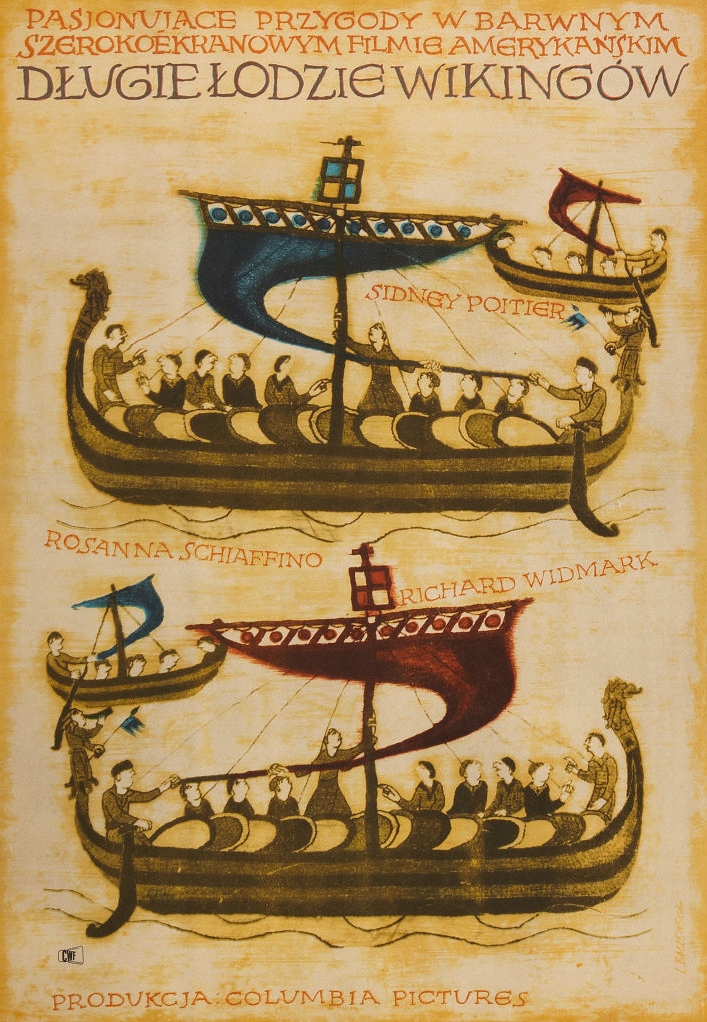 PASJONUJĄCE PRZYGODY W BARWNYM
SZEROKOEKRANOWYM FILMIE AMERYKAŃSKIM
DŁUGIE ŁODZIE WIKINGÓW
SIDNEY POITIER
ROSANNA SCHIAFFINO
RICHARD WIDMARK
CWF
PRODUKCJA: COLUMBIA PICTURES